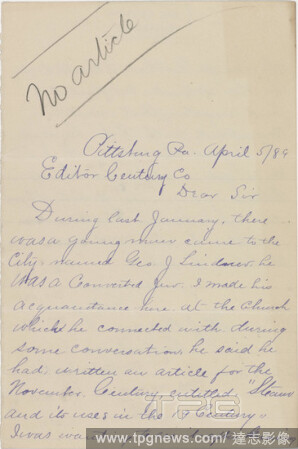 No article
Pittsburg Pa. April 5/89
Editor Century Co
Dear Sir
During last January, there
was a young man came to the
City, named Geo J Lindner. he
was a Converted Jew. I made his
acquaintance here at the Church
which he connected with. during
some conversations he said he
had written an article for the
November Century entitled "Steam
and its uses in the 19 Century"
TPG
www.tpgnews.com / 達志影像